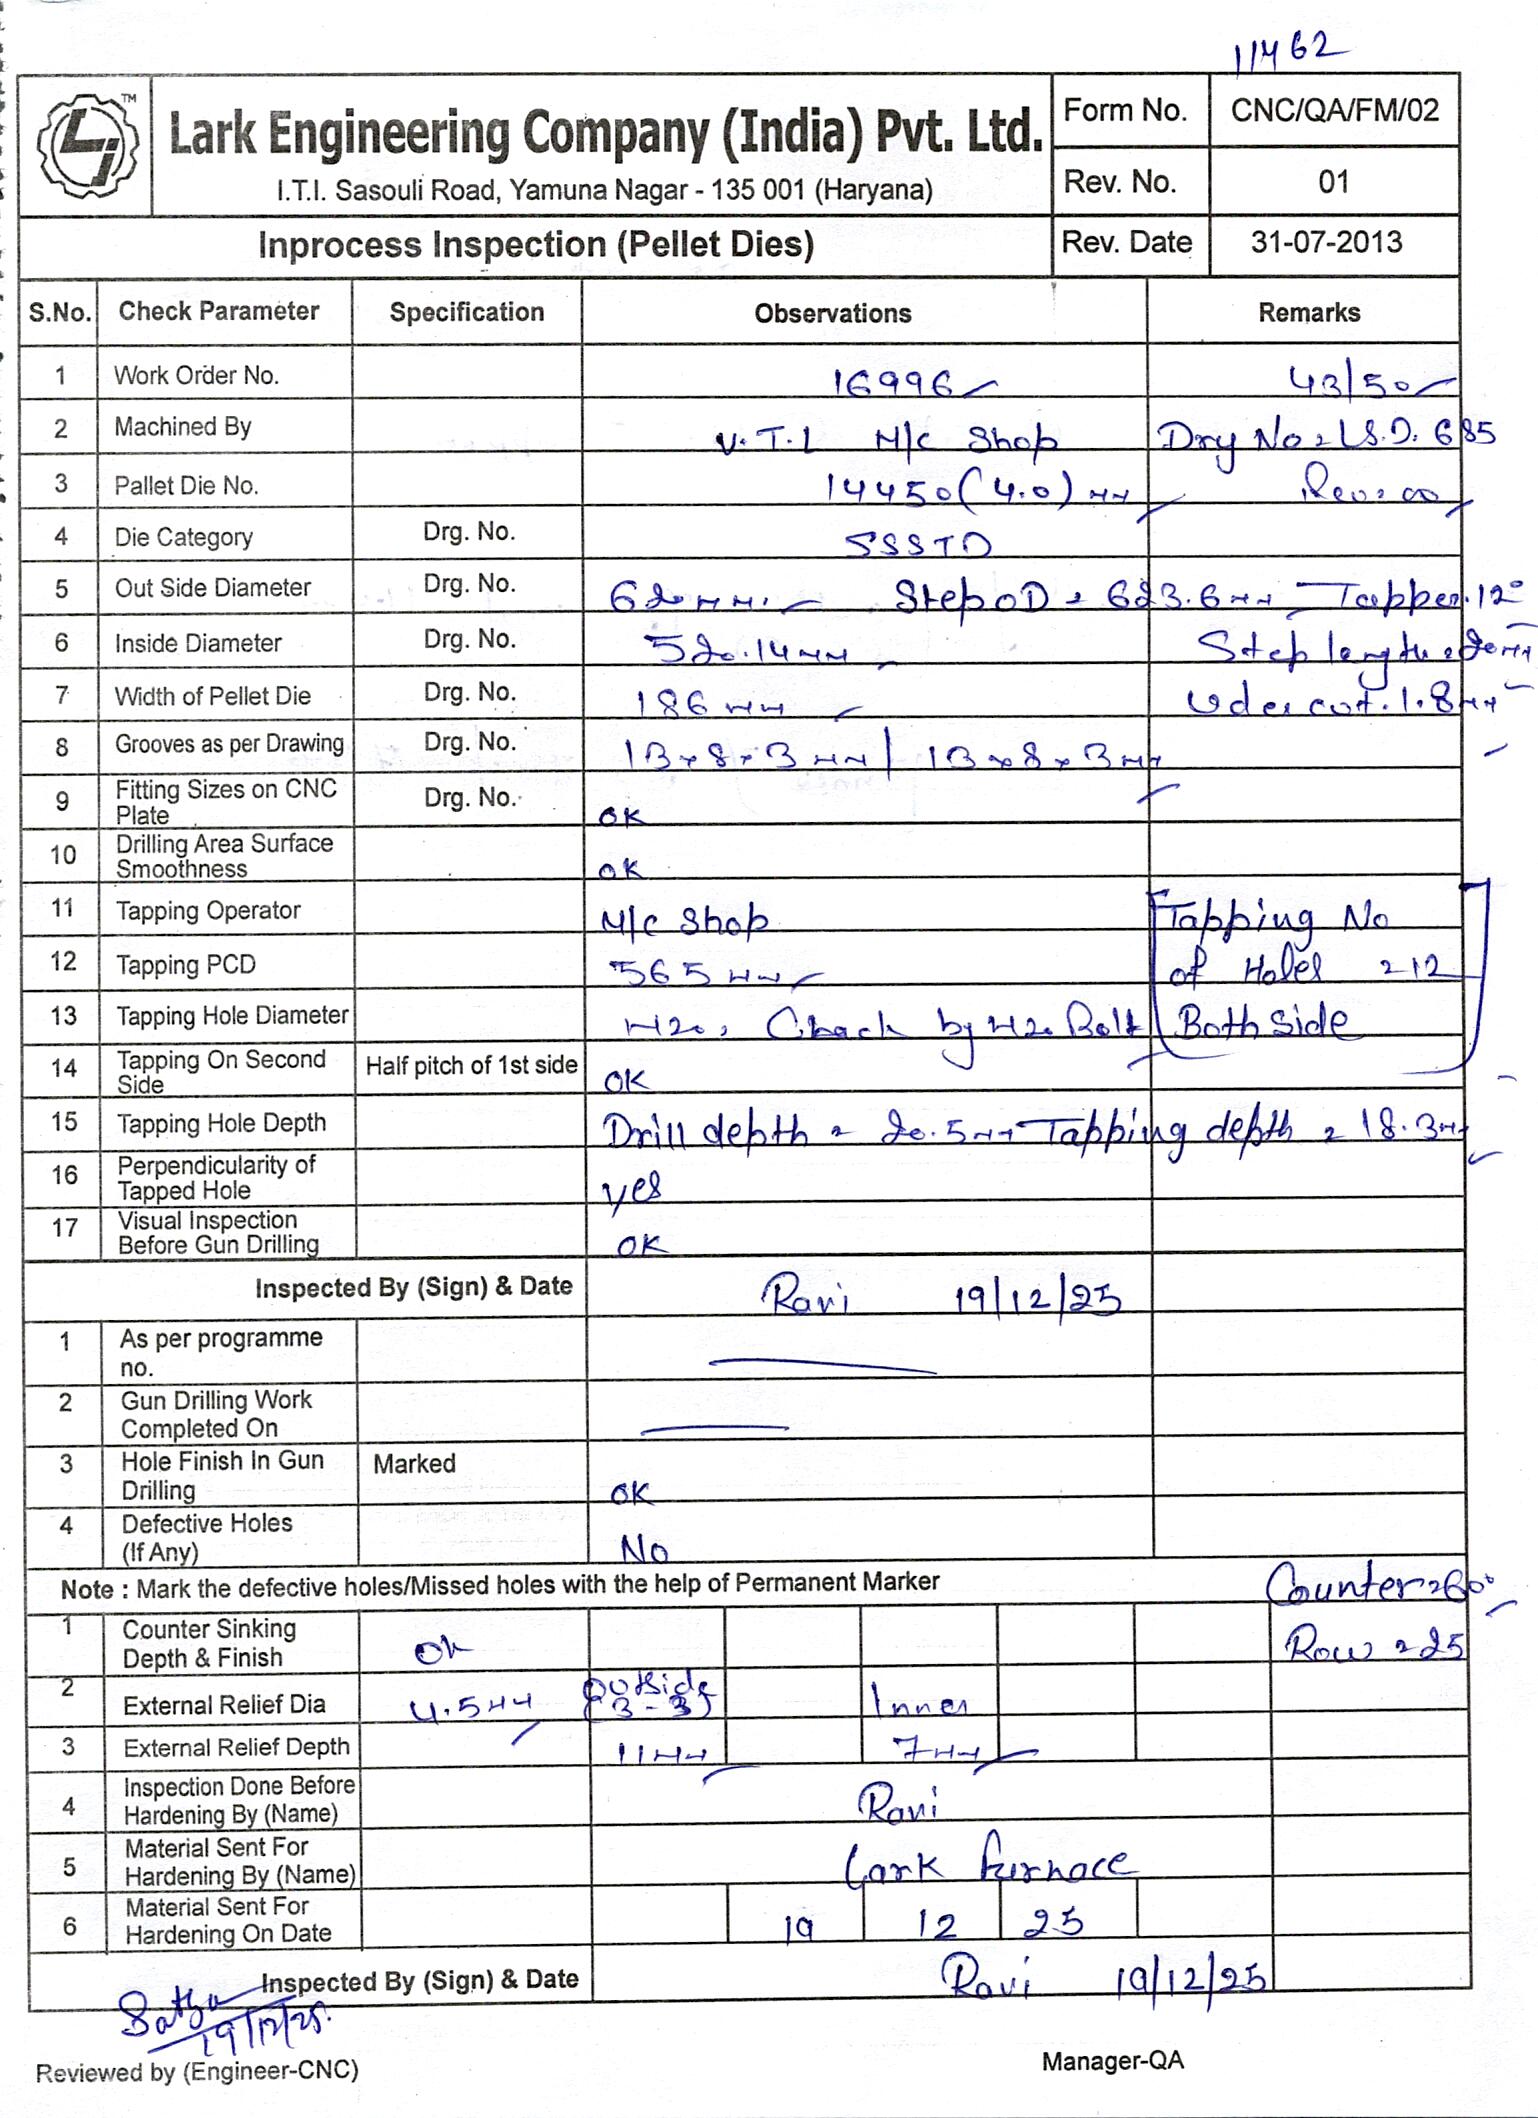 11462
Lark Engineering Company (India) Pvt. Ltd.
I.T.I. Sasouli Road, Yamuna Nagar - 135 001 (Haryana)
Form No. CNC/QA/FM/02
Rev. No. 01
Inprocess Inspection (Pellet Dies) Rev. Date 31-07-2013
S.No. Check Parameter Specification Observations Remarks
1 Work Order No. 16996 43/50
2 Machined By V.T.L M/c Shop Drg No = L.S.D. 685
3 Pallet Die No. 14450 (4.0) mm Rev = 00
4 Die Category Drg. No. SSSTD
5 Out Side Diameter Drg. No. 620mm. Step OD = 623.6mm Tapper. 12°
6 Inside Diameter Drg. No. 520.14mm Step length = 20mm
7 Width of Pellet Die Drg. No. 186 mm Uder cut. 1.8mm
8 Grooves as per Drawing Drg. No. 13 x 8 x 3 mm / 13 x 8 x 3 mm
9 Fitting Sizes on CNC Plate Drg. No. OK
10 Drilling Area Surface Smoothness OK
11 Tapping Operator M/c Shop Tapping No
12 Tapping PCD 565 mm of Holes = 12
13 Tapping Hole Diameter M20, Chack by M20 Bolt Both Side
14 Tapping On Second Side Half pitch of 1st side OK
15 Tapping Hole Depth Drill depth = 20.5mm Tapping depth = 18.3mm
16 Perpendicularity of Tapped Hole yes
17 Visual Inspection Before Gun Drilling OK
Inspected By (Sign) & Date Ravi 19/12/25
1 As per programme no.
2 Gun Drilling Work Completed On
3 Hole Finish In Gun Drilling Marked OK
4 Defective Holes (If Any) No
Note : Mark the defective holes/Missed holes with the help of Permanent Marker Counter = 60°
1 Counter Sinking Depth & Finish Ok Row = 25
2 External Relief Dia 4.5mm Outside (3-3) Inner
3 External Relief Depth 11mm 7mm
4 Inspection Done Before Hardening By (Name) Ravi
5 Material Sent For Hardening By (Name) Lark Furnace
6 Material Sent For Hardening On Date 19 12 25
Inspected By (Sign) & Date Ravi 19/12/25
19/12/25.
Reviewed by (Engineer-CNC) Manager-QA